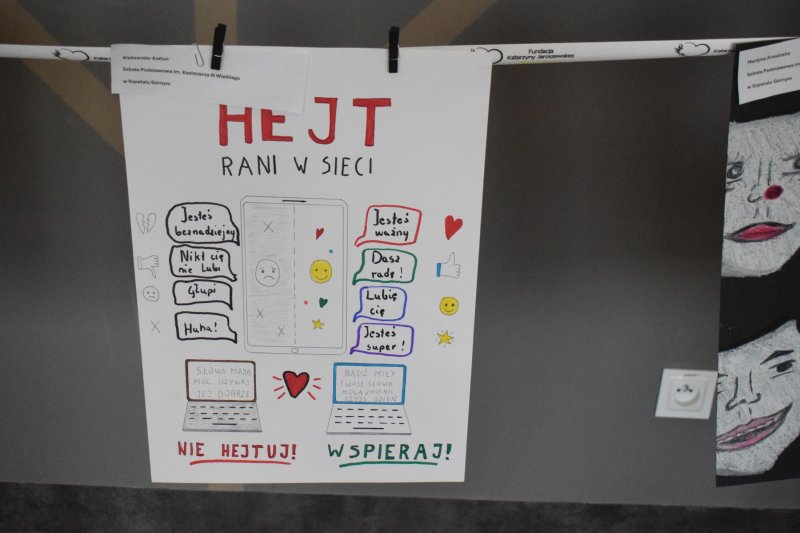 Fundacja
Katarzyny Jaroszewskiej
Aleksander Kołtun
Szkoła Podstawowa im. Kazimierza III Wielkiego
w Szpetalu Górnym
Martyna Krawińska
Szkoła Podstawowa im.
w Szpetalu Górnym
HEJT
RANI W SIECI
Jesteś
beznadziejny
Nikt cię
nie lubi
Głupi
Haha!
Jesteś
ważny
Dasz
radę!
Lubię
cię
Jesteś
super!
SŁOWA MAJĄ
MOC UŻYWAJ
JEJ DOBRZE
BĄDŹ MIŁY
TWOJE SŁOWA
MOGĄ ZMIENIĆ
CZYJŚ DZIEŃ
NIE HEJTUJ!
WSPIERAJ!